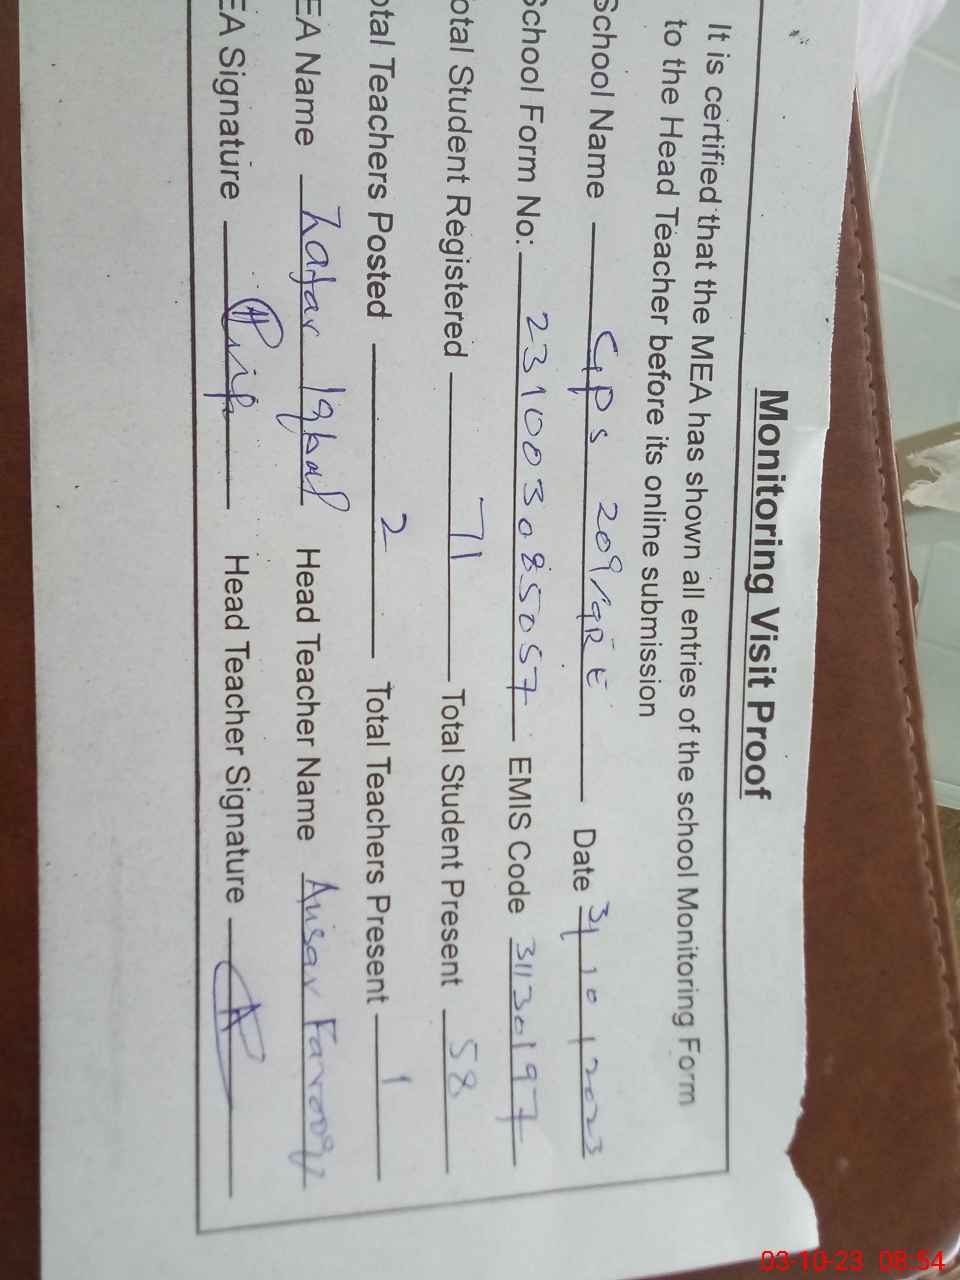 Monitoring Visit Proof
It is certified that the MEA has shown all entries of the school Monitoring Form
to the Head Teacher before its online submission
School Name GPS 209/9R E Date 3/10/2023
School Form No: 231003085057 EMIS Code 31130197
otal Student Registered 71 Total Student Present 58
otal Teachers Posted 2 Total Teachers Present 1
EA Name Zafar Iqbal Head Teacher Name Ansar Farooq
EA Signature Head Teacher Signature
03-10-23 08:54